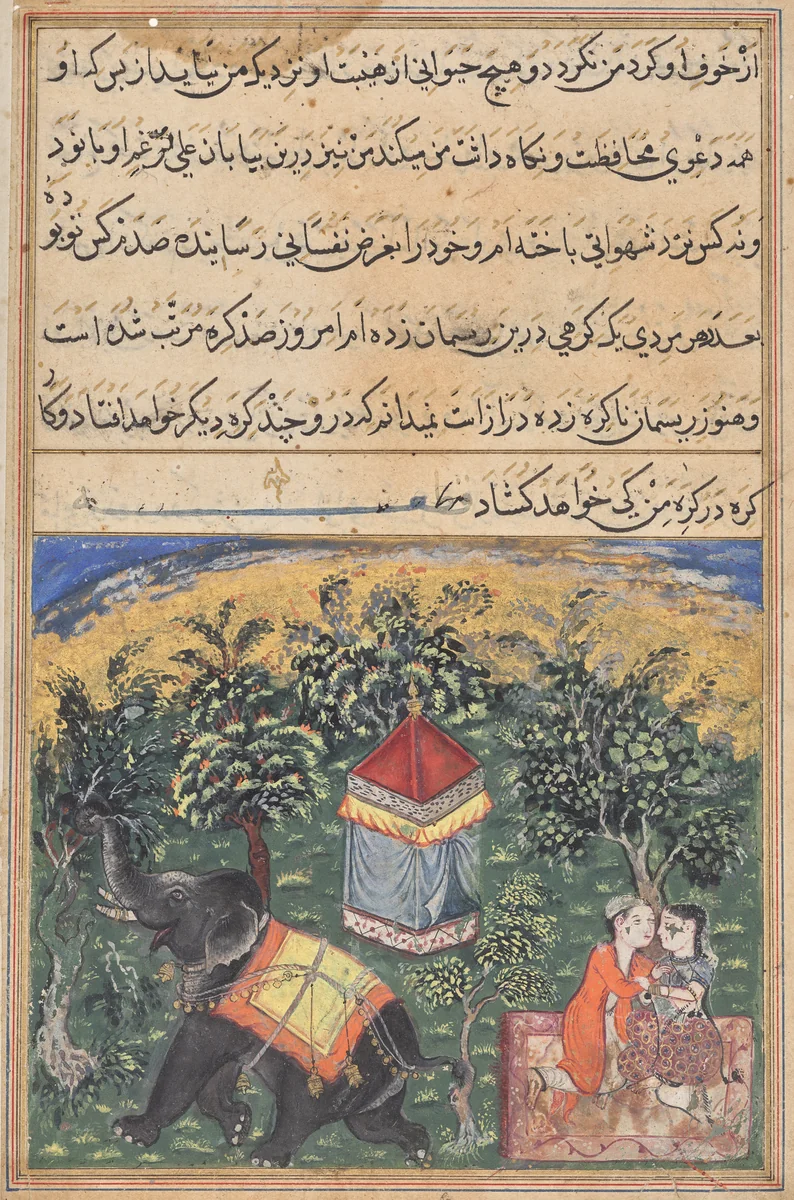 از خوف او گرد من نگردد و هیچ حیوانی از هیبت او نزدیک من نیاید از بس که او
همه دعوی محافظت و نگاه داشت من میکند من نیز درین بیابان علی الرغم او با نود
و نه کس نرد شهواتی باخته ام و خود را بغرض نفسانی رسانیده صدم کس تو بودهٔ
بعد هر مردی یک گرهی درین ریسمان زده ام امروز صد گره مرتب شده است
و هنوز ریسمان ناگره زده دراز است نمیدانم که درو چند گره دیگر خواهد افتاد و کار
گره در گره من کی خواهد گشاد